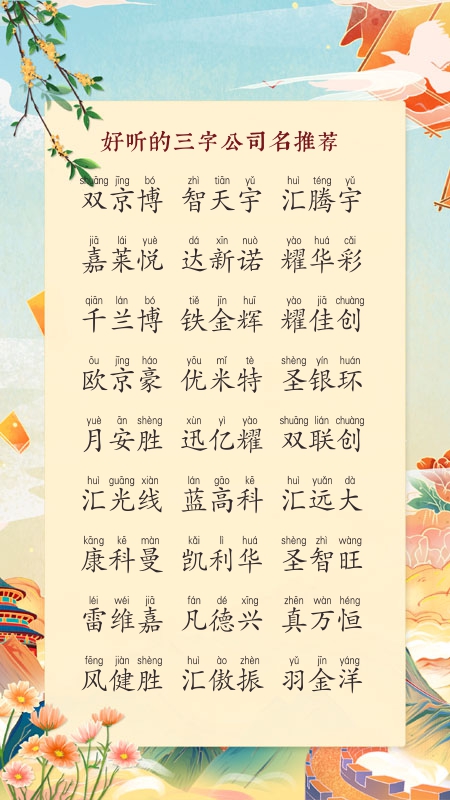 好听的三字公司名推荐
shuāng jīng bó zhì tiān yǔ huì téng yǔ
双京博 智天宇 汇腾宇
jiā lái yuè dá xīn nuò yào huá cǎi
嘉莱悦 达新诺 耀华彩
qiān lán bó tiě jīn huī yào jiā chuàng
千兰博 铁金辉 耀佳创
ōu jīng háo yōu mǐ tè shèng yín huán
欧京豪 优米特 圣银环
yuè ān shèng xùn yì yào shuāng lián chuàng
月安胜 迅亿耀 双联创
huì guāng xiàn lán gāo kē huì yuǎn dà
汇光线 蓝高科 汇远大
kāng kē màn kǎi lì huá shèng zhì wàng
康科曼 凯利华 圣智旺
léi wéi jiā fán dé xīng zhēn wàn héng
雷维嘉 凡德兴 真万恒
fēng jiàn shèng huì ào zhèn yǔ jīn yáng
风健胜 汇傲振 羽金洋